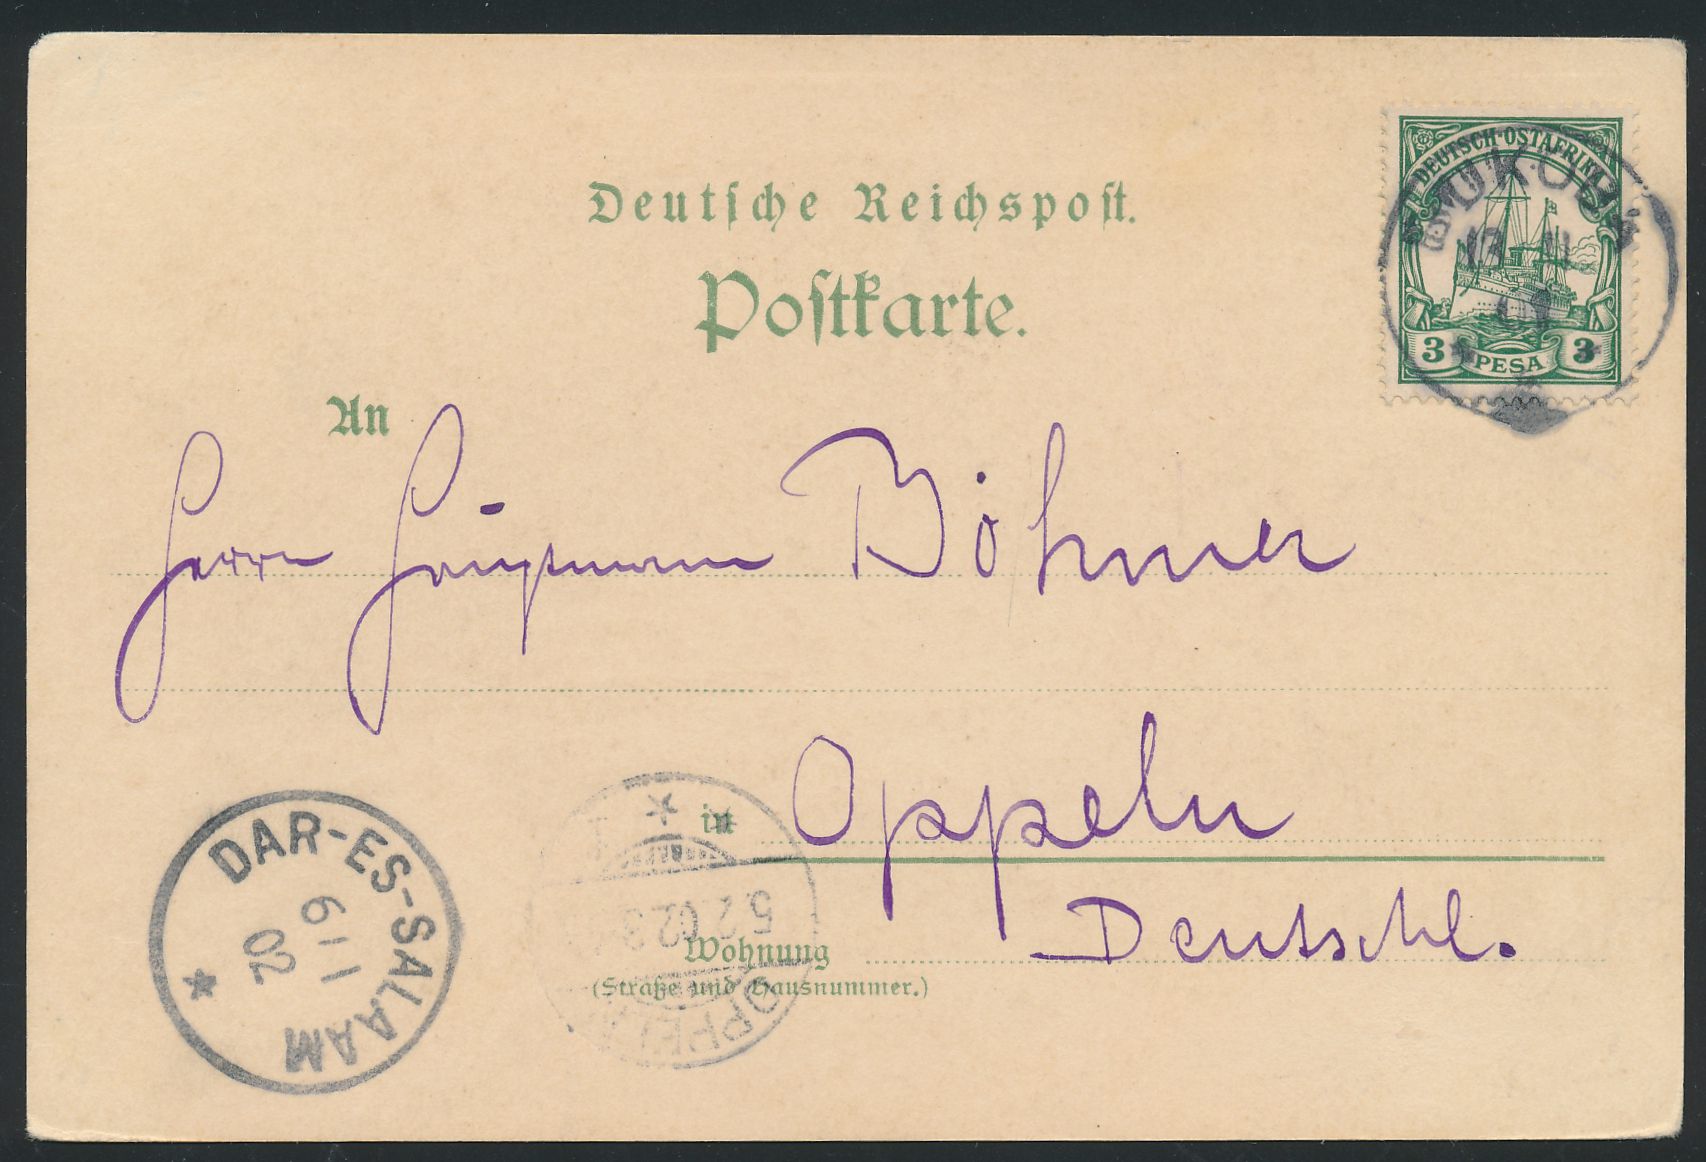 Deutsche Reichspost.
Postkarte.
DEUTSCH-OSTAFRIKA
3 PESA 3
BUKOBA
An
Herrn Hauptmann Böhmer
in Oppeln
Wohnung Deutschl.
(Straße und Hausnummer.)
DAR-ES-SALAAM
6 11
02
5.2.02
OPPELN